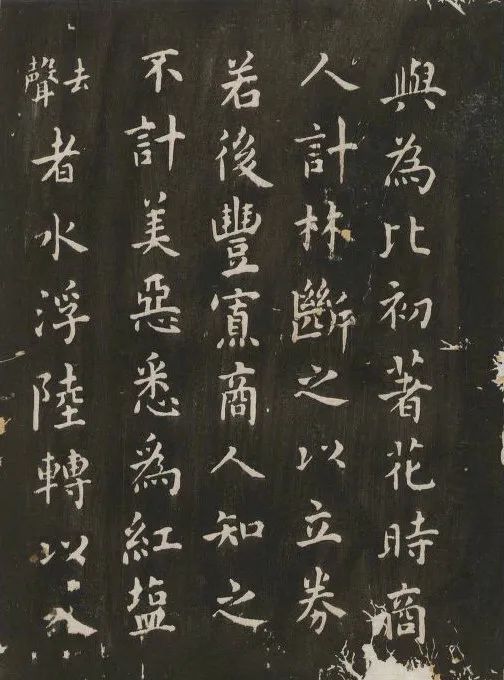 與為比初著花時商
人計林斷之以立券
若後豐寡商人知之
不計美惡悉為紅塩
去聲者水浮陸轉以入